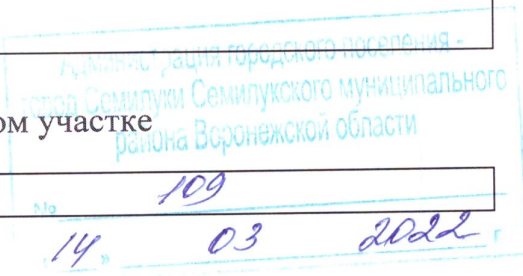 Администрация городского поселения -
город Семилуки Семилукского муниципального
района Воронежской области
ом участке
№ 109
14 » 03 2022 г